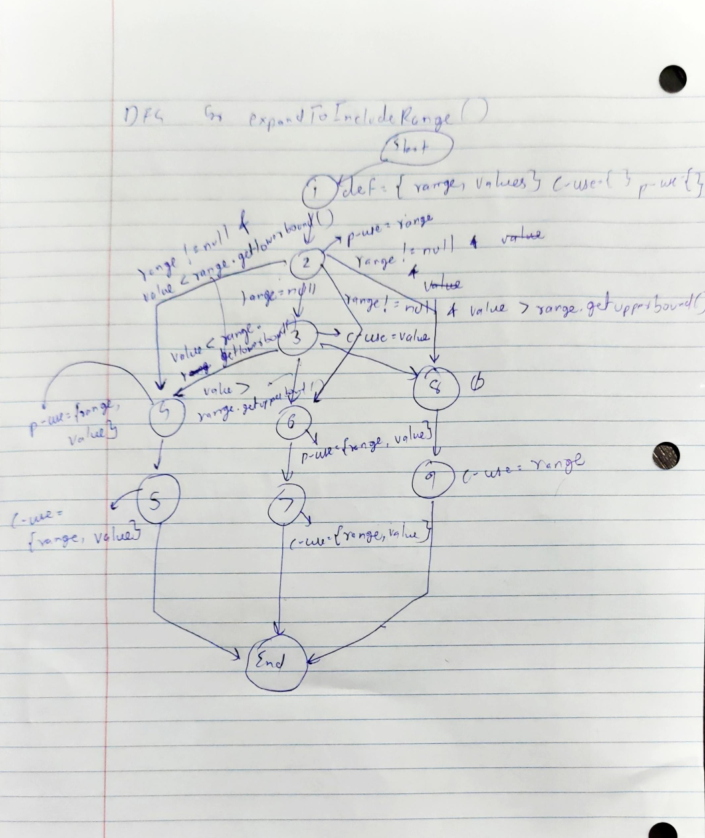 DFG for expandToIncludeRange()
Start
1 def = { range, values} c-use={ } p-use:{}
range != null &
value < range.getlowerbound()
2 p-use = range
range != null & value
& value
range = null
range != null & value > range.getupperbound()
value < range.
getlowerbound()
3 c-use = value
value >
range.getupperbound()
8 ϕ
p-use={range,
value}
6
p-use={range, value}
5
c-use=
{range, value}
7
c-use={range, value}
9 c-use = range
End